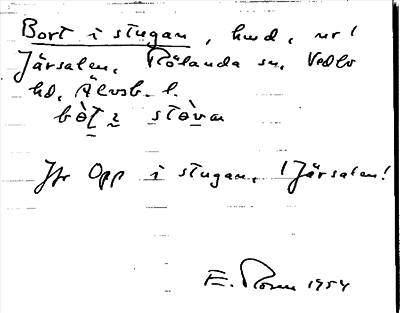 Bort i stugan, hmd, nr 1
Järsalen, Rölanda sn, Vedbo
hd, Älvsb. l.
bòt ɿ stòvan
Jfr Opp i stugan, 1 Järsalen!
E. Rosén 1954